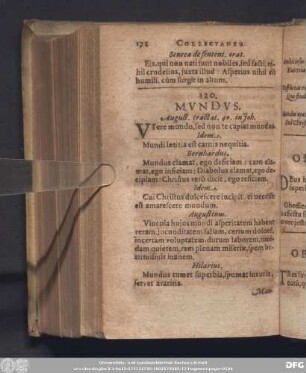 172 COLLECTANEA
Seneca de sentent. orat.
Eis, qui non nati sunt nobiles, sed facti, ni-
hil crudelius, juxta illud: Asperius nihil est
humili, cùm surgit in altum.
120.
MVNDVS.
August. tractat. 40. in Joh.
VTere mundo, sed non te capiat mundus.
Idem.
Mundi letitia est carnis nequitia.
Bernhardus.
Mundus clamat, ego deficiam: caro cla-
mat, ego inficiam; Diabolus clamat, ego de-
cipiam: Christus verò dicit, ego reficiam.
Idem.
Cui Christus dulcescere incipit, ei necesse
est amarescere mundum.
Augustinus.
Vincula hujus mundi asperitatem habent
veram, jucunditatem falsam, certum dolorē,
incertam voluptatem, durum laborem, timi-
dam quietem, rem plenam miseriæ, spem be-
atitudinis inanem.
Hilarius.
Mundus tumet superbia, spumat luxuria,
fervet avaritia.
DFG